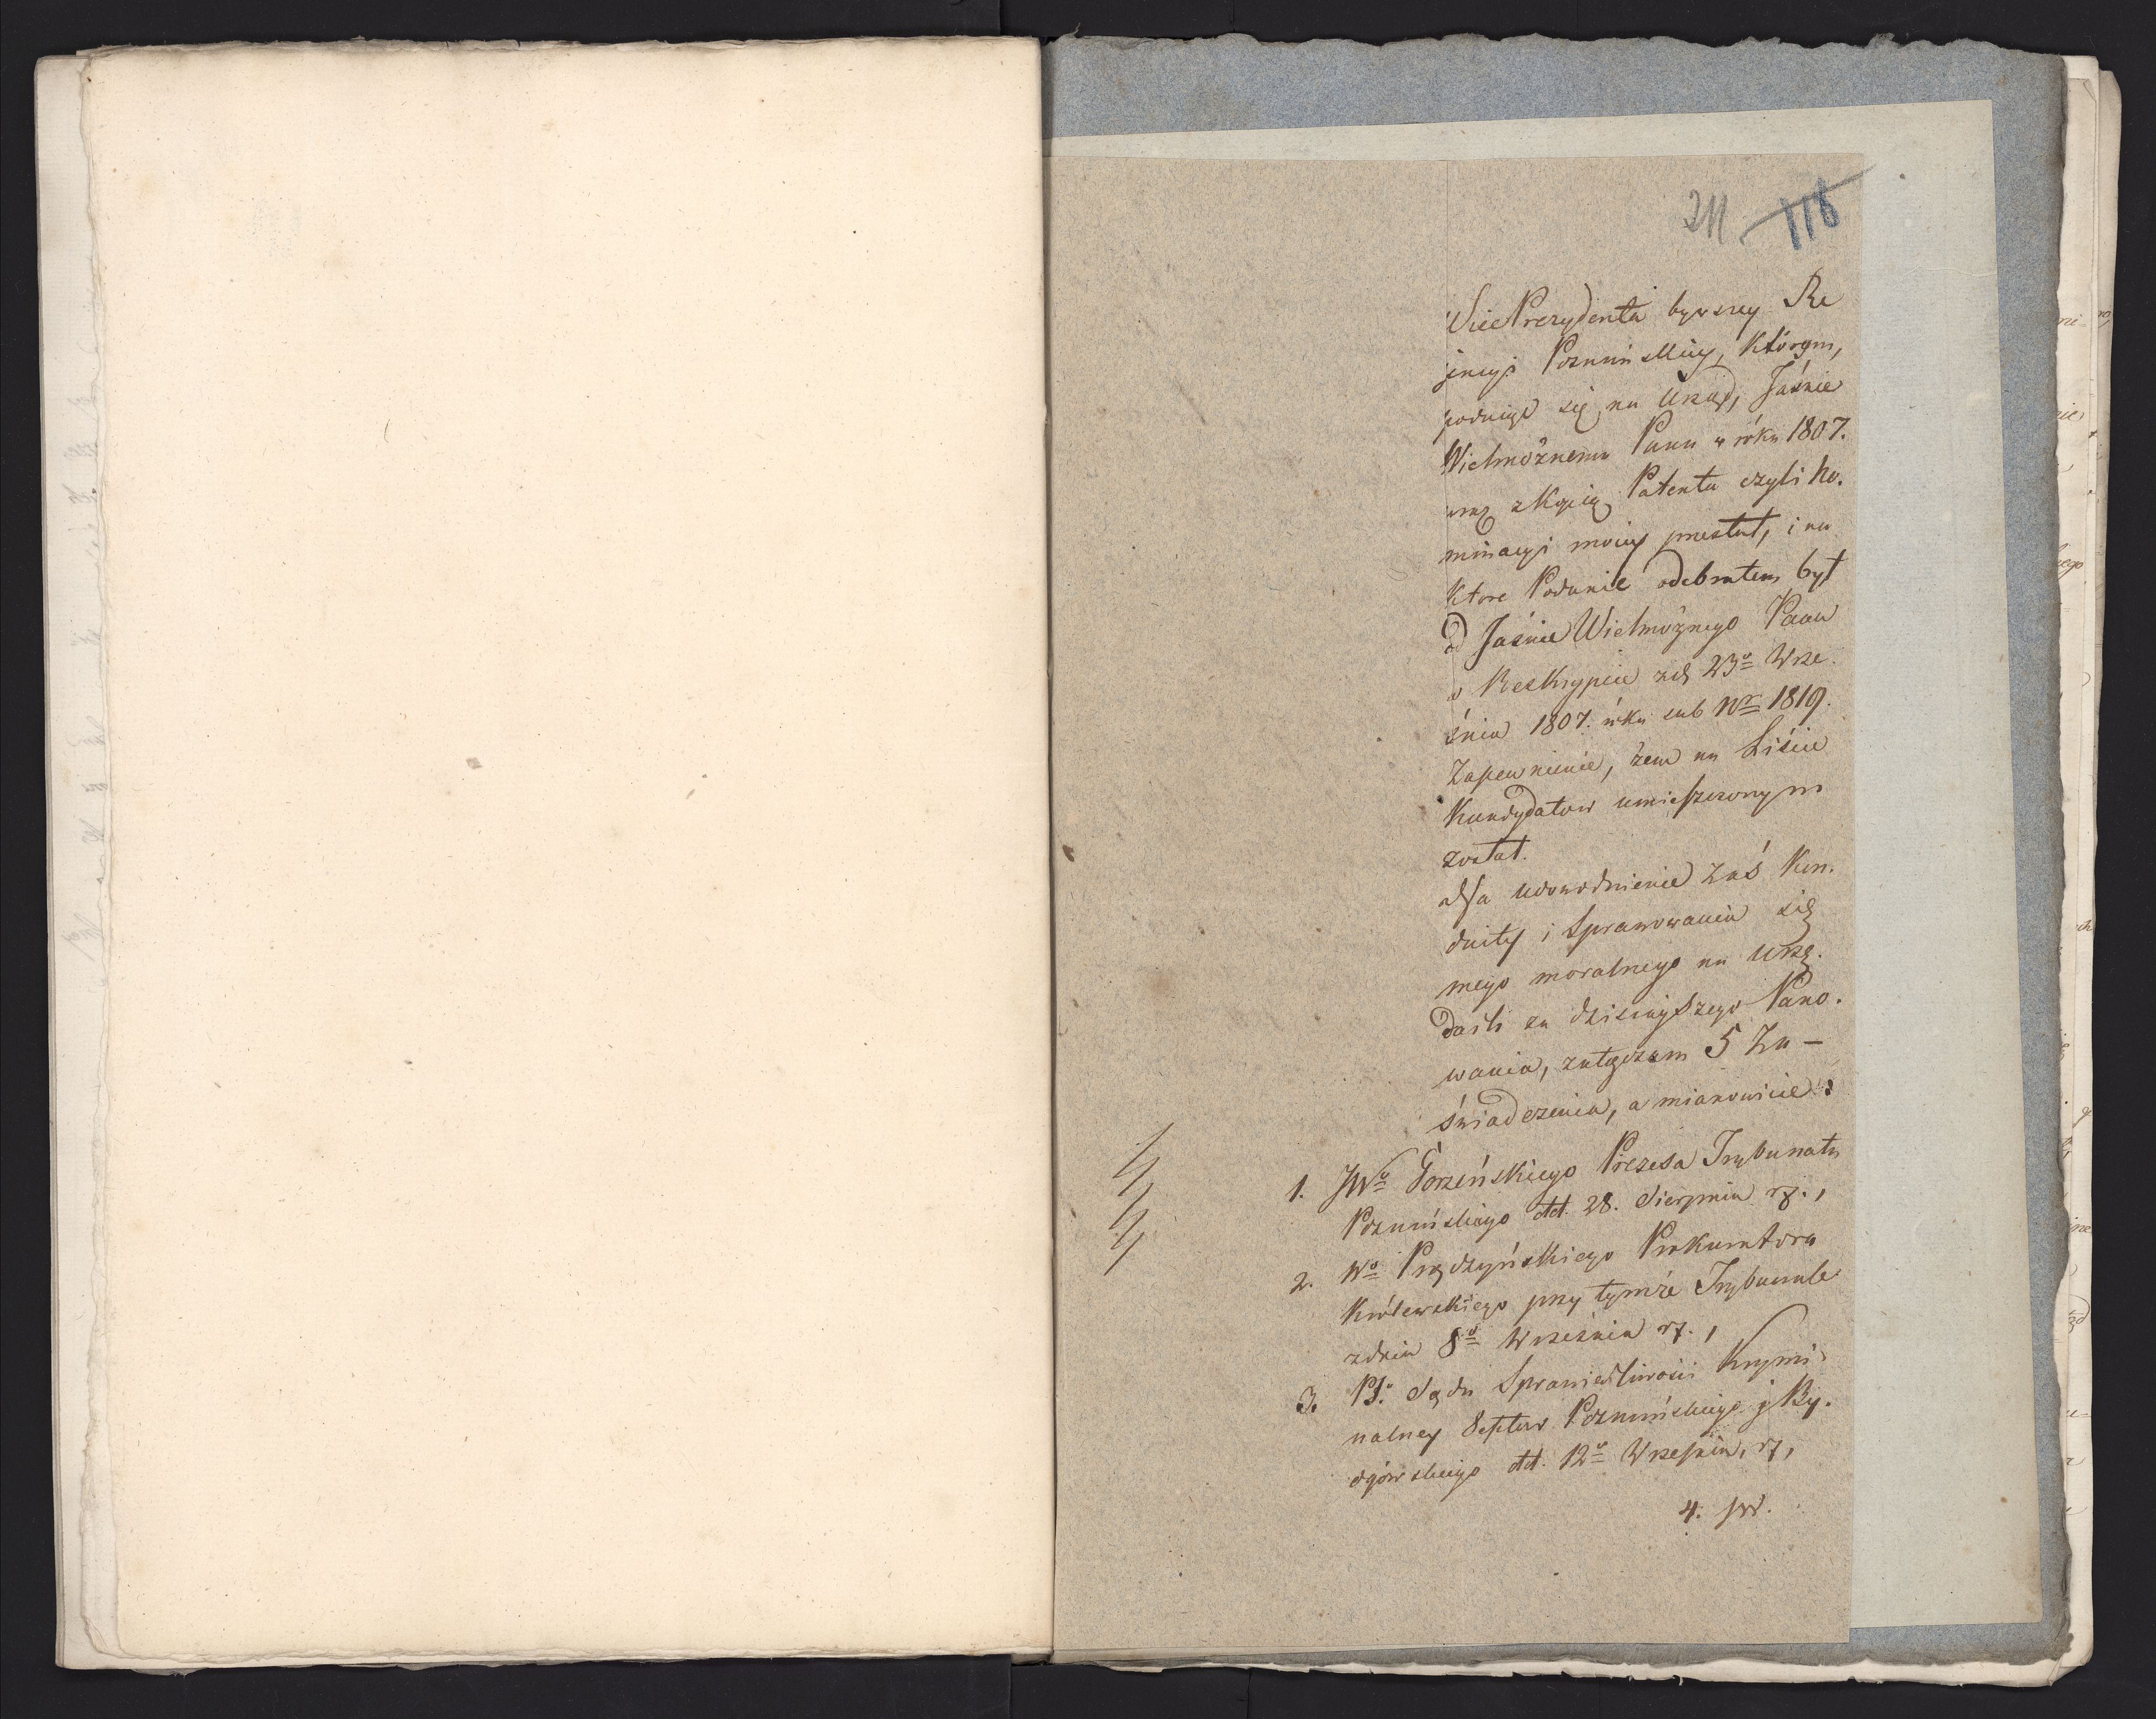 211 116
Vice Prezydenta bywszey Re
jencyi Poznańskiey, którym,
podniósł się na Urząd, Jaśnie
Wielmożnemu Panu w róku 1807.
wraz z Kopią Patentu czyli No.
minacyi moiey przesłał, i na
ktore Podanie odebrałem był
od Jaśnie Wielmożnego Pana
w Reskrypcie zd. 23º Wrze.
śnia 1807. róku sub Nro 1819.
Zapewnienie, żem na Liście
Kandydatow umieszczonym
został.
dla udowodnienia zaś Kon.
duity i Sprawowania się
mego moralnego na Urzę.
dach za dzisieyszego Pano.
wania, załączam 5 Za-
świadczenia, a mianowicie:
1. JWº Gorzeńskiego Prezesa Trybunału
Poznańskiego dd. 28. Sierpnia rz.,
2. Wº Prądzyńskiego Prokuratora
Królewskiego przy tymże Trybunale
zdnia 8º Września rz.,
3. Sądu Sprawiedliwości Krymi
nalney Deptow Poznańskiego i By.
dgówskiego dd. 12º Września, rz,
4. JW.